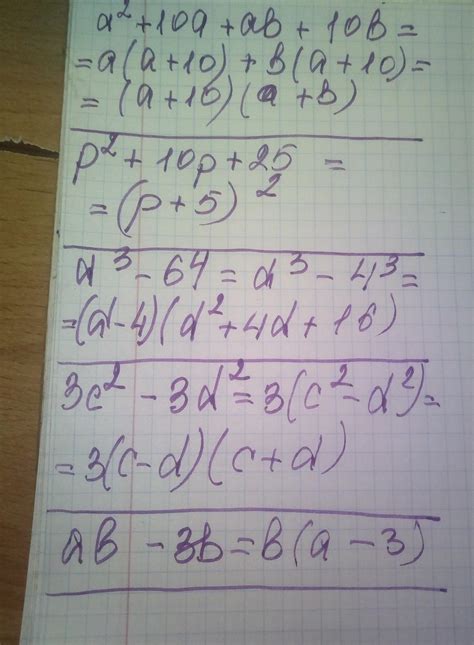 a² + 10a + ab + 10b =
= a(a+10) + b(a+10) =
= (a+10)(a+b)
p² + 10p + 25 =
= (p+5)²
d³ - 64 = d³ - 4³ =
= (d-4)(d² + 4d + 16)
3c² - 3d² = 3(c² - d²) =
= 3(c-d)(c+d)
ab - 3b = b(a-3)